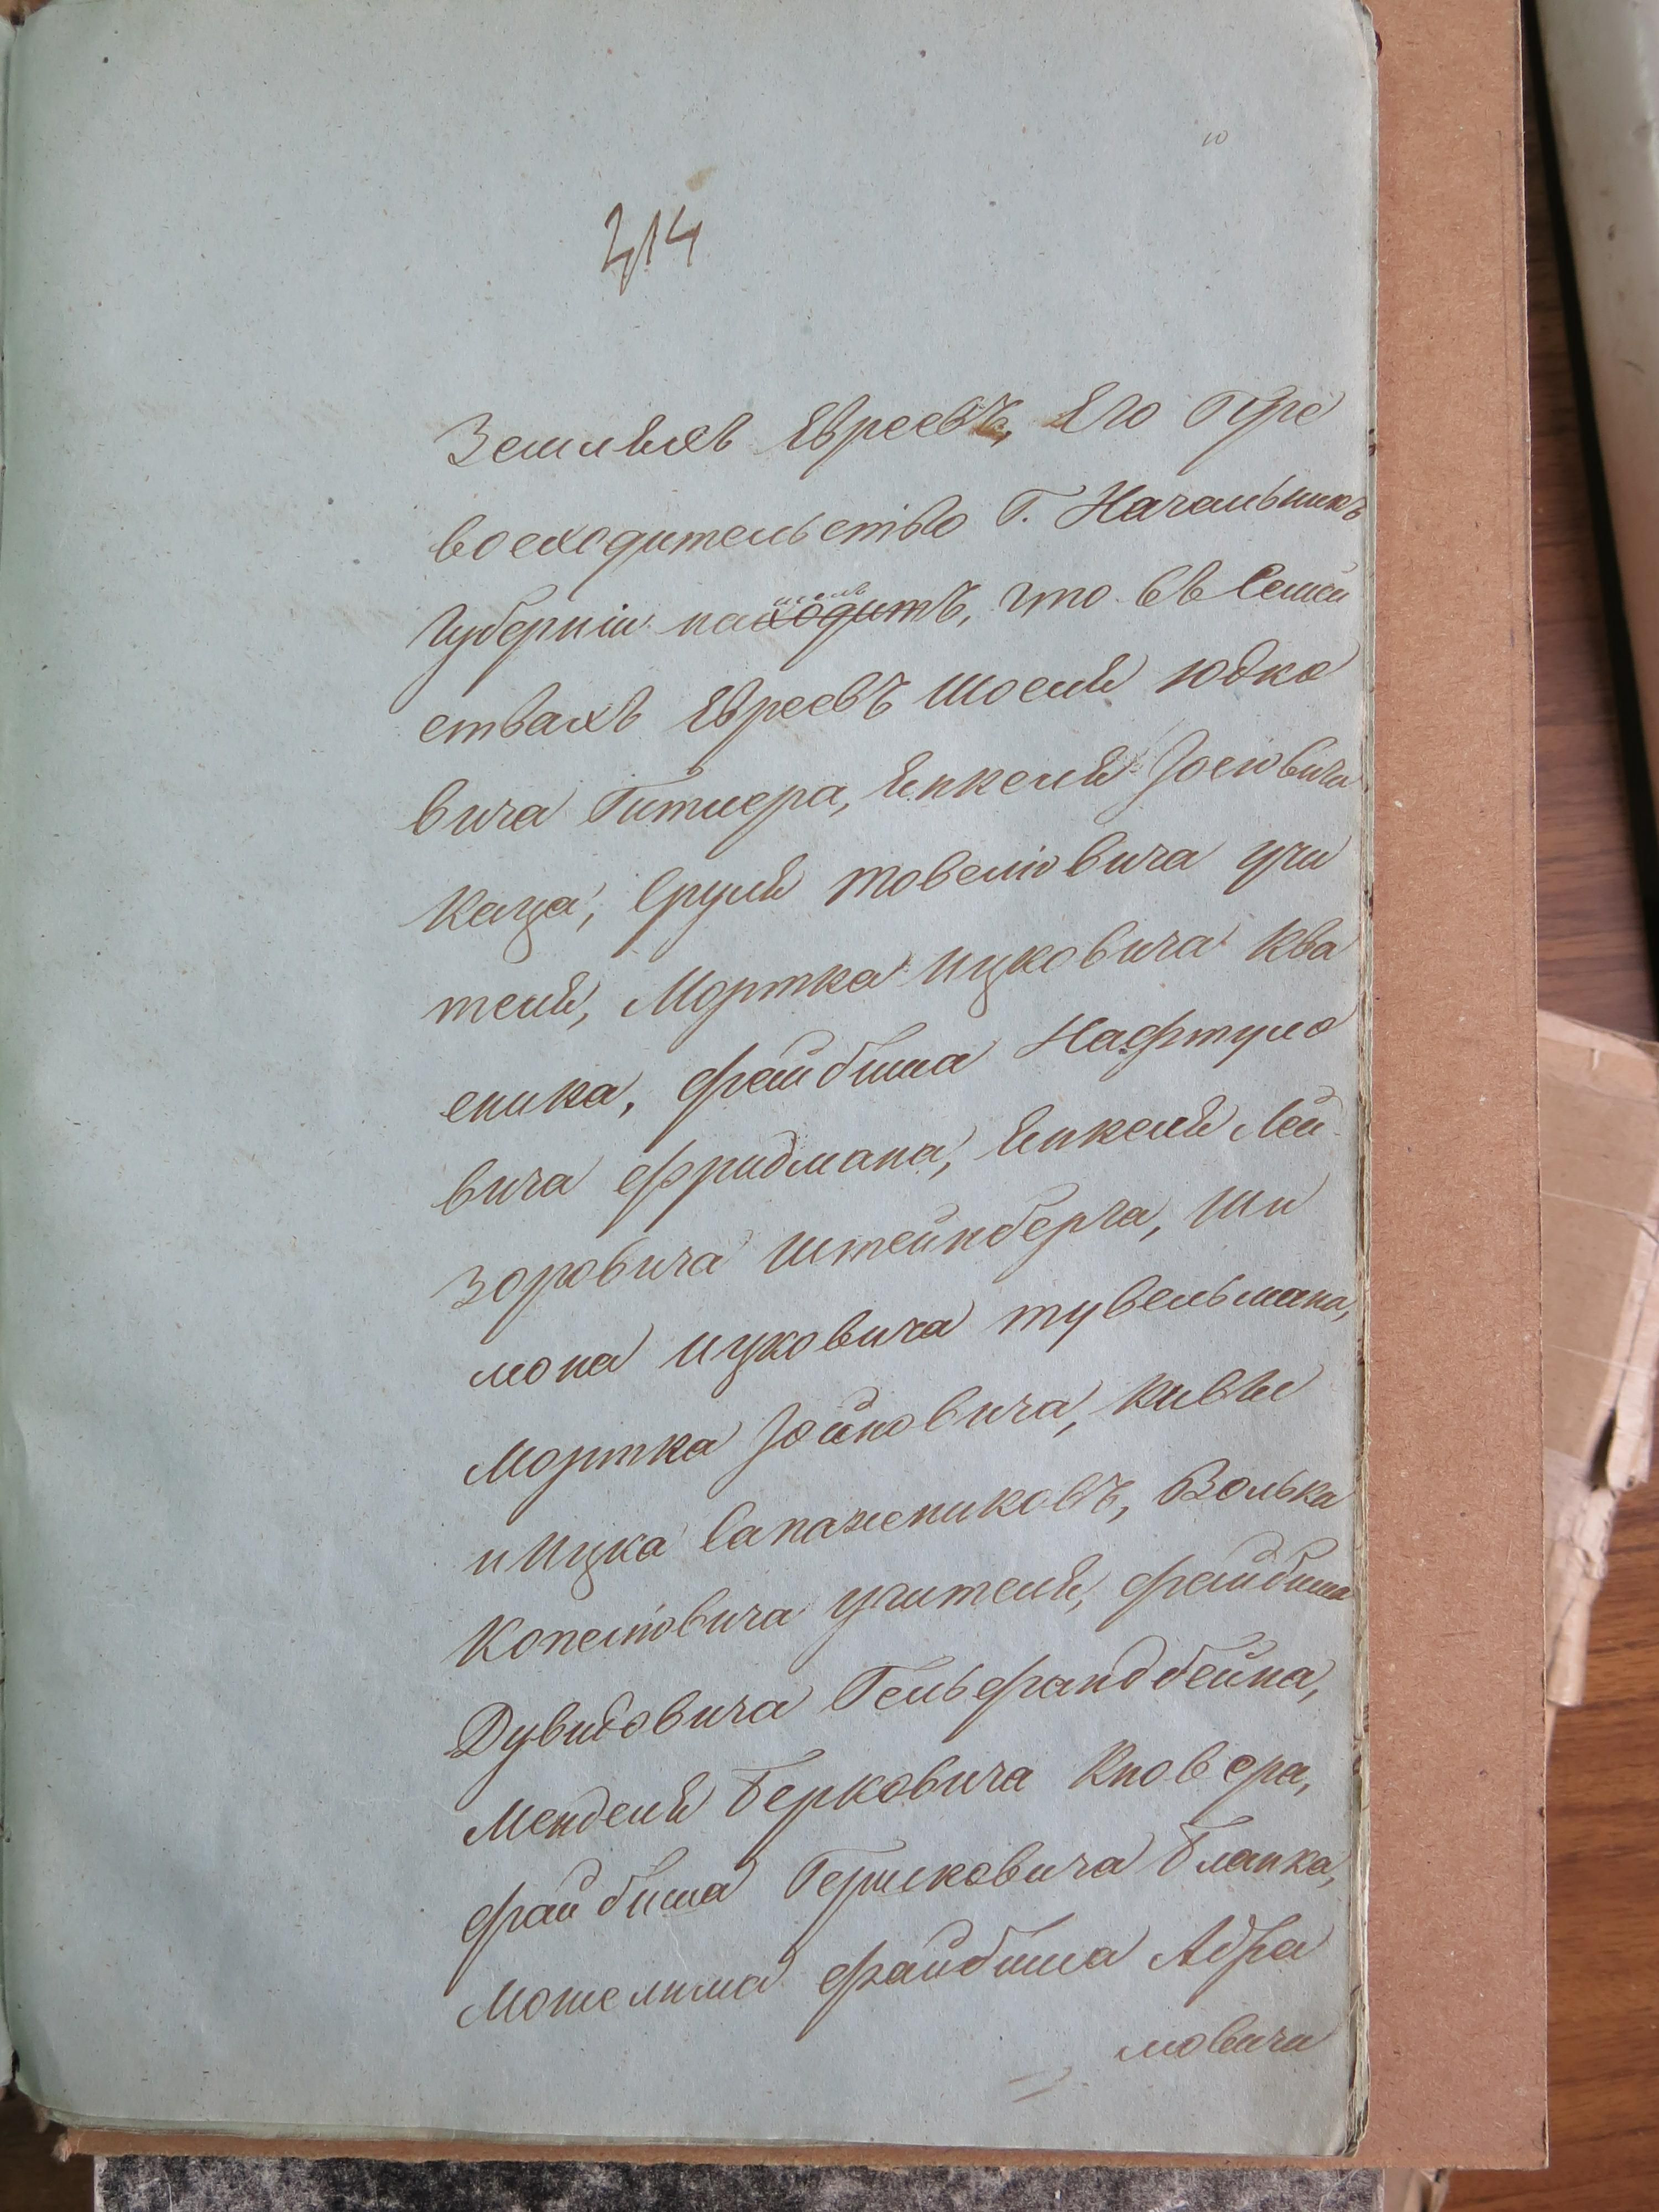 10
214
Земляхъ Евреевъ, Его Пре
восходительство Г. Начальникъ
Губерніи находитъ, что въ Семей
шелъ
ствахъ Евреевъ Шоеля Юдко
вича Гитмера, Янкеля Іосіовича
Каца, Сруля Товеліовича Учи
теля, Мортка Ицковича Ква
сника, Файбиша Нафтуло
вича Фридмана, Янкеля Лей
зоровича Штейнберга, Ши
мона Ицковича Тувельмана,
Мортка Іойновича, Кивы
и Ицка Сапажниковъ, Волька
Копеліовича Учителя, Файбиша
Дувидовича Гельфандбейна,
Менделя Берковича Кновера,
Файбиша Гершковича Бланка,
Мошелима Файбиша Абра
мовича